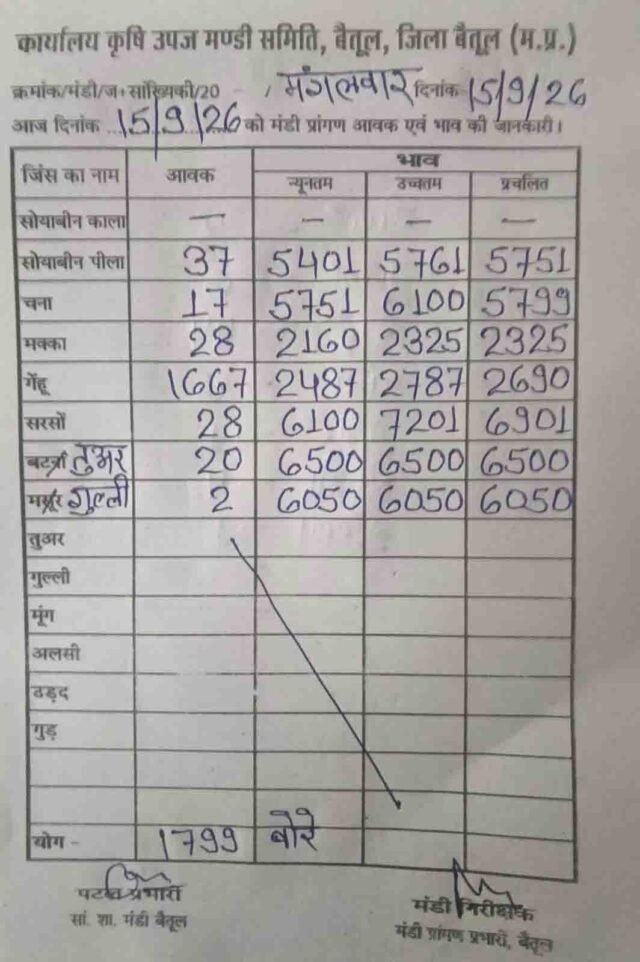 कार्यालय कृषि उपज मण्डी समिति, बैतूल, जिला बैतूल (म.प्र.)
क्रमांक/मंडी/ज+सांख्यिकी/20 / मंगलवार दिनांक 15/9/26
आज दिनांक 15/9/26 को मंडी प्रांगण आवक एवं भाव की जानकारी।
जिंस का नाम आवक भाव
न्यूनतम उच्चतम प्रचलित
सोयाबीन काला — — — —
सोयाबीन पीला 37 5401 5761 5751
चना 17 5751 6100 5799
मक्का 28 2160 2325 2325
गेंहू 1667 2487 2787 2690
सरसों 28 6100 7201 6901
तुअर 20 6500 6500 6500
मसूर गुल्ली 2 6050 6050 6050
तुअर
गुल्ली
मूंग
अलसी
उड़द
गुड़
योग - 1799 बोरे
प्रभारी
सां. शा. मंडी बैतूल
मंडी निरीक्षक
मंडी प्रांगण प्रभारी, बैतूल